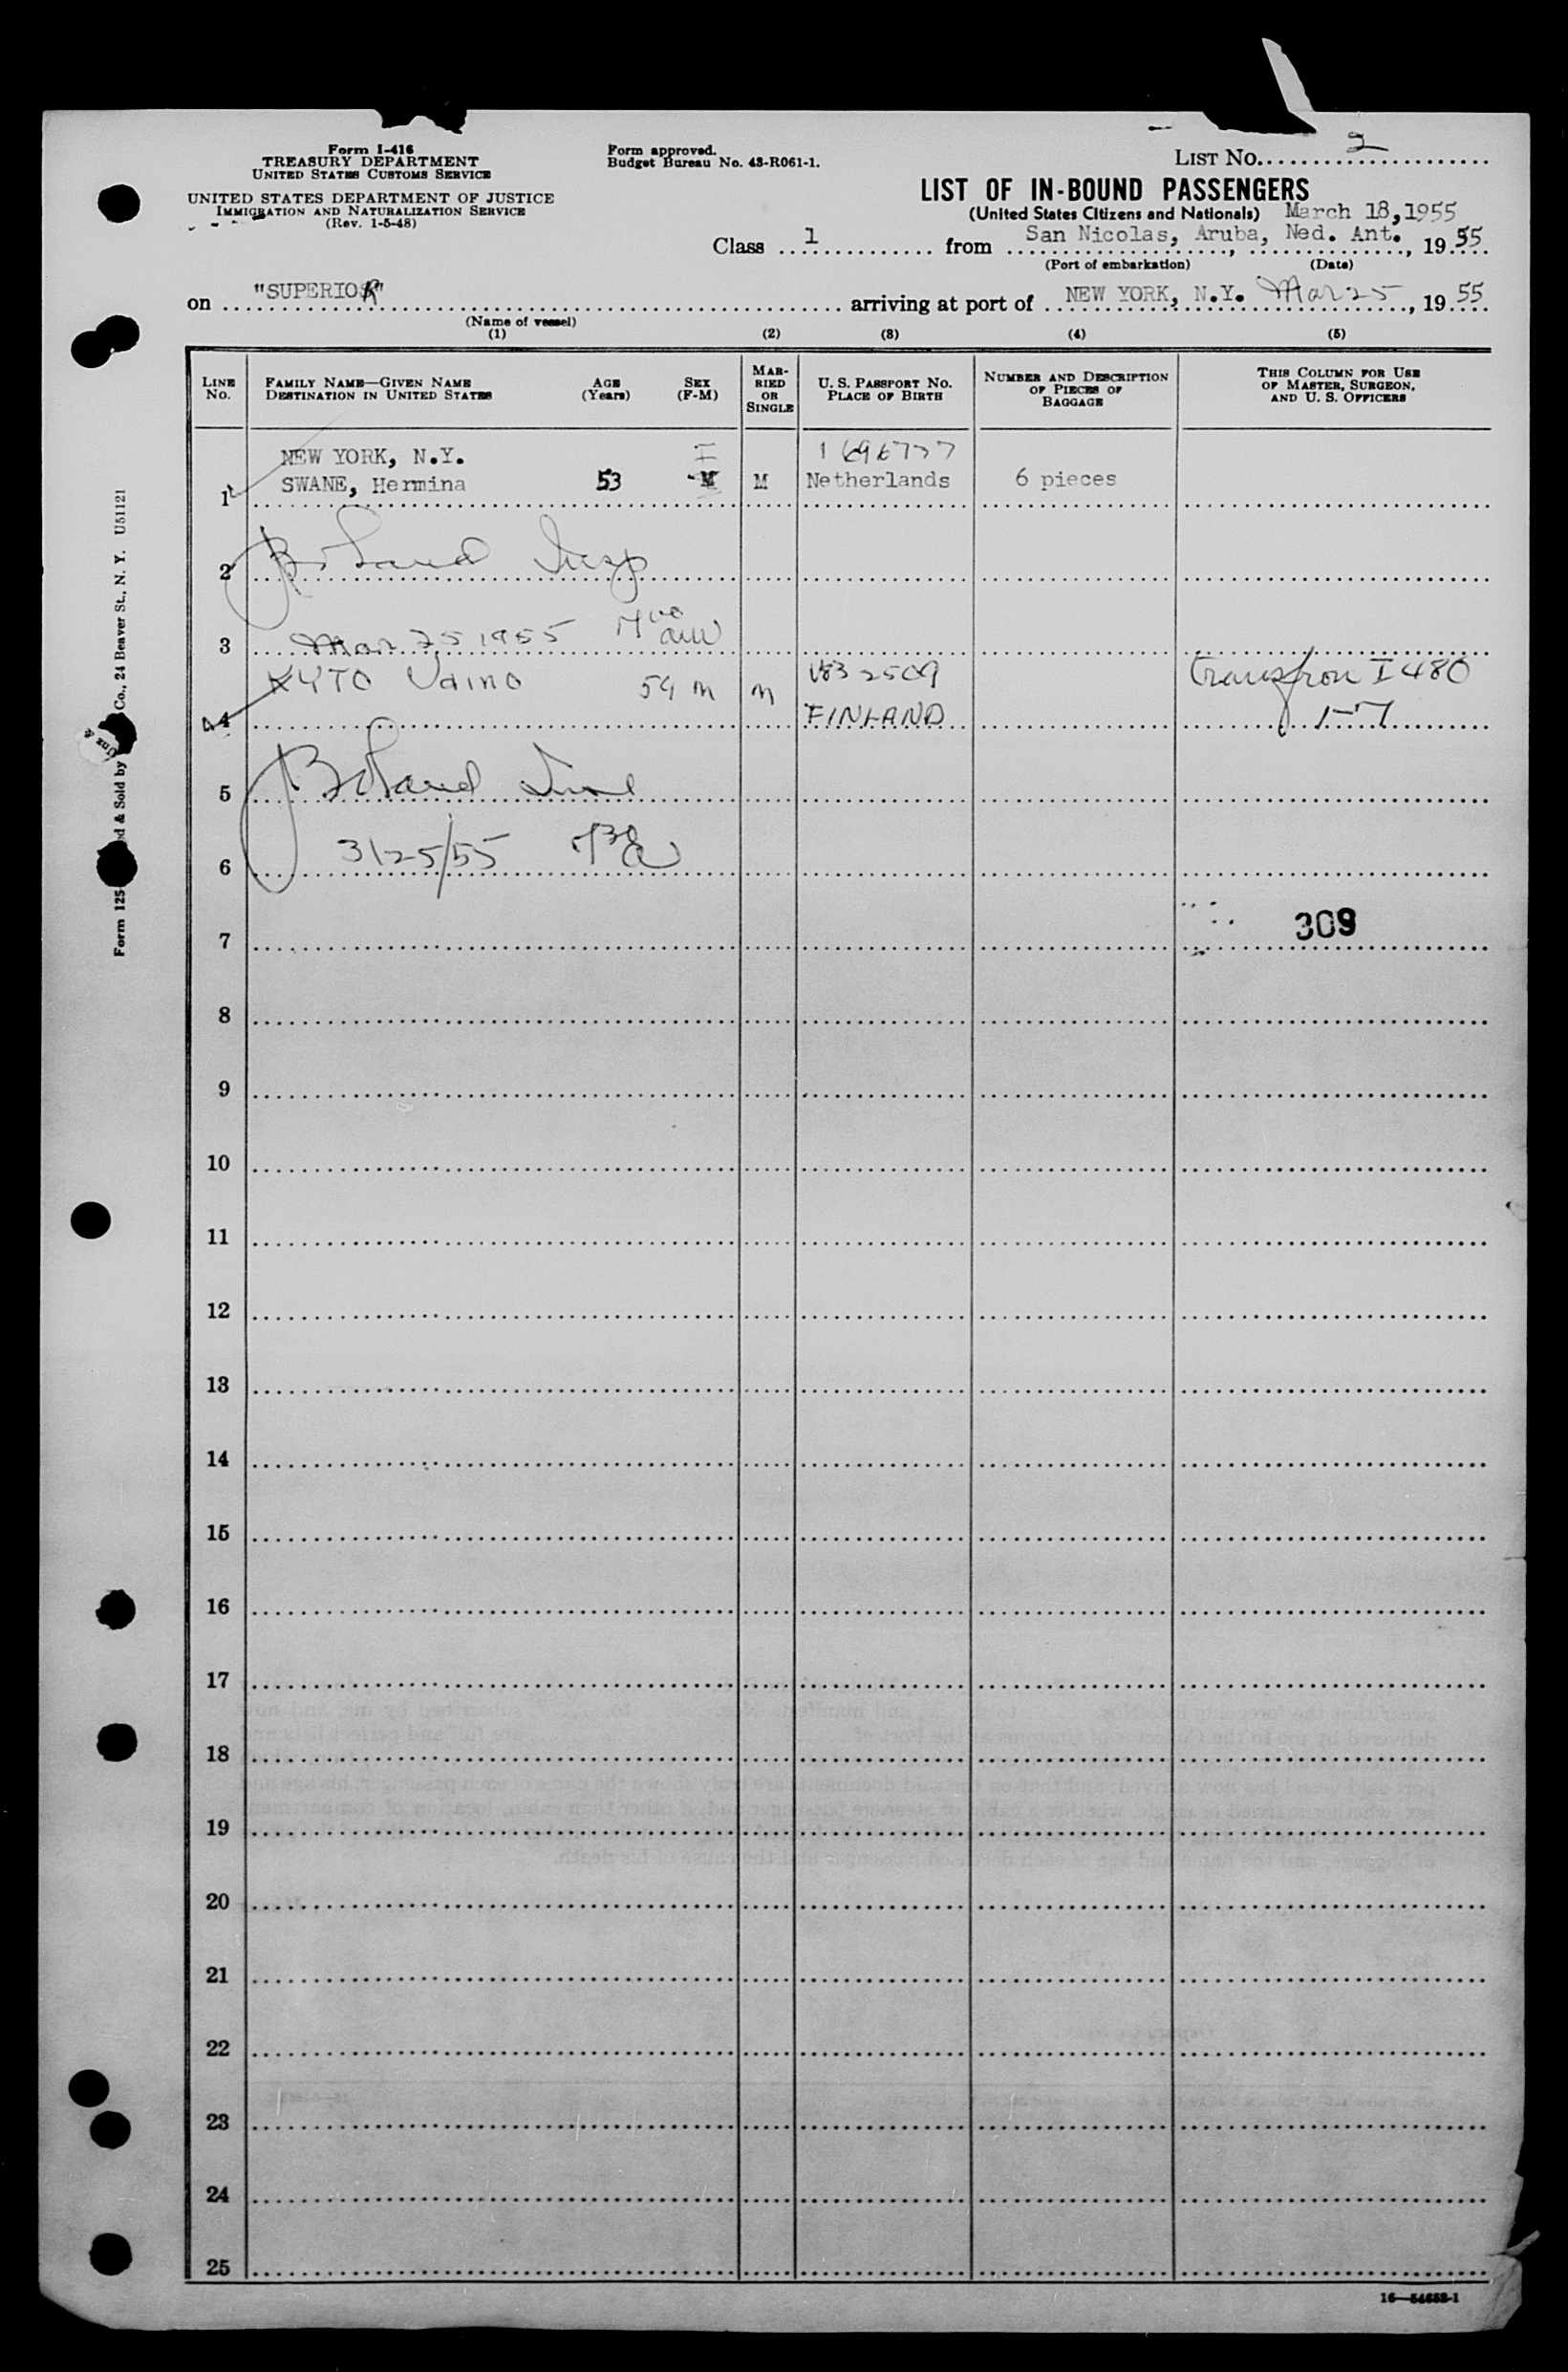 Form I-416
TREASURY DEPARTMENT
UNITED STATES CUSTOMS SERVICE
UNITED STATES DEPARTMENT OF JUSTICE
IMMIGRATION AND NATURALIZATION SERVICE
(Rev. 1-5-48)
Form approved.
Budget Bureau No. 43-R061-1.
LIST No. 2
LIST OF IN-BOUND PASSENGERS
(United States Citizens and Nationals) March 18, 1955
Class 1 from San Nicolas, Aruba, Ned. Ant., 1955
(Port of embarkation) (Date)
on "SUPERIOR" arriving at port of NEW YORK, N.Y. Mar 25, 1955
(Name of vessel)
(1) (2) (3) (4) (5)
LINE No.
FAMILY NAME—GIVEN NAME
DESTINATION IN UNITED STATES
AGE (Years)
SEX (F-M)
MARRIED OR SINGLE
U. S. PASSPORT NO.
PLACE OF BIRTH
NUMBER AND DESCRIPTION OF PIECES OF BAGGAGE
THIS COLUMN FOR USE OF MASTER, SURGEON, AND U. S. OFFICERS
NEW YORK, N.Y.
1 SWANE, Hermina 53 M Netherlands 6 pieces
2 Insp
3 Mar 25 1955
KYTO Vaino 54 m m
4 FINLAND I 480
5
6 3/25/55
7 309
8
9
10
11
12
13
14
15
16
17
18
19
20
21
22
23
24
25
16—54652-1
Co., 24 Beaver St., N. Y. U51121
Form 125
& Sold by